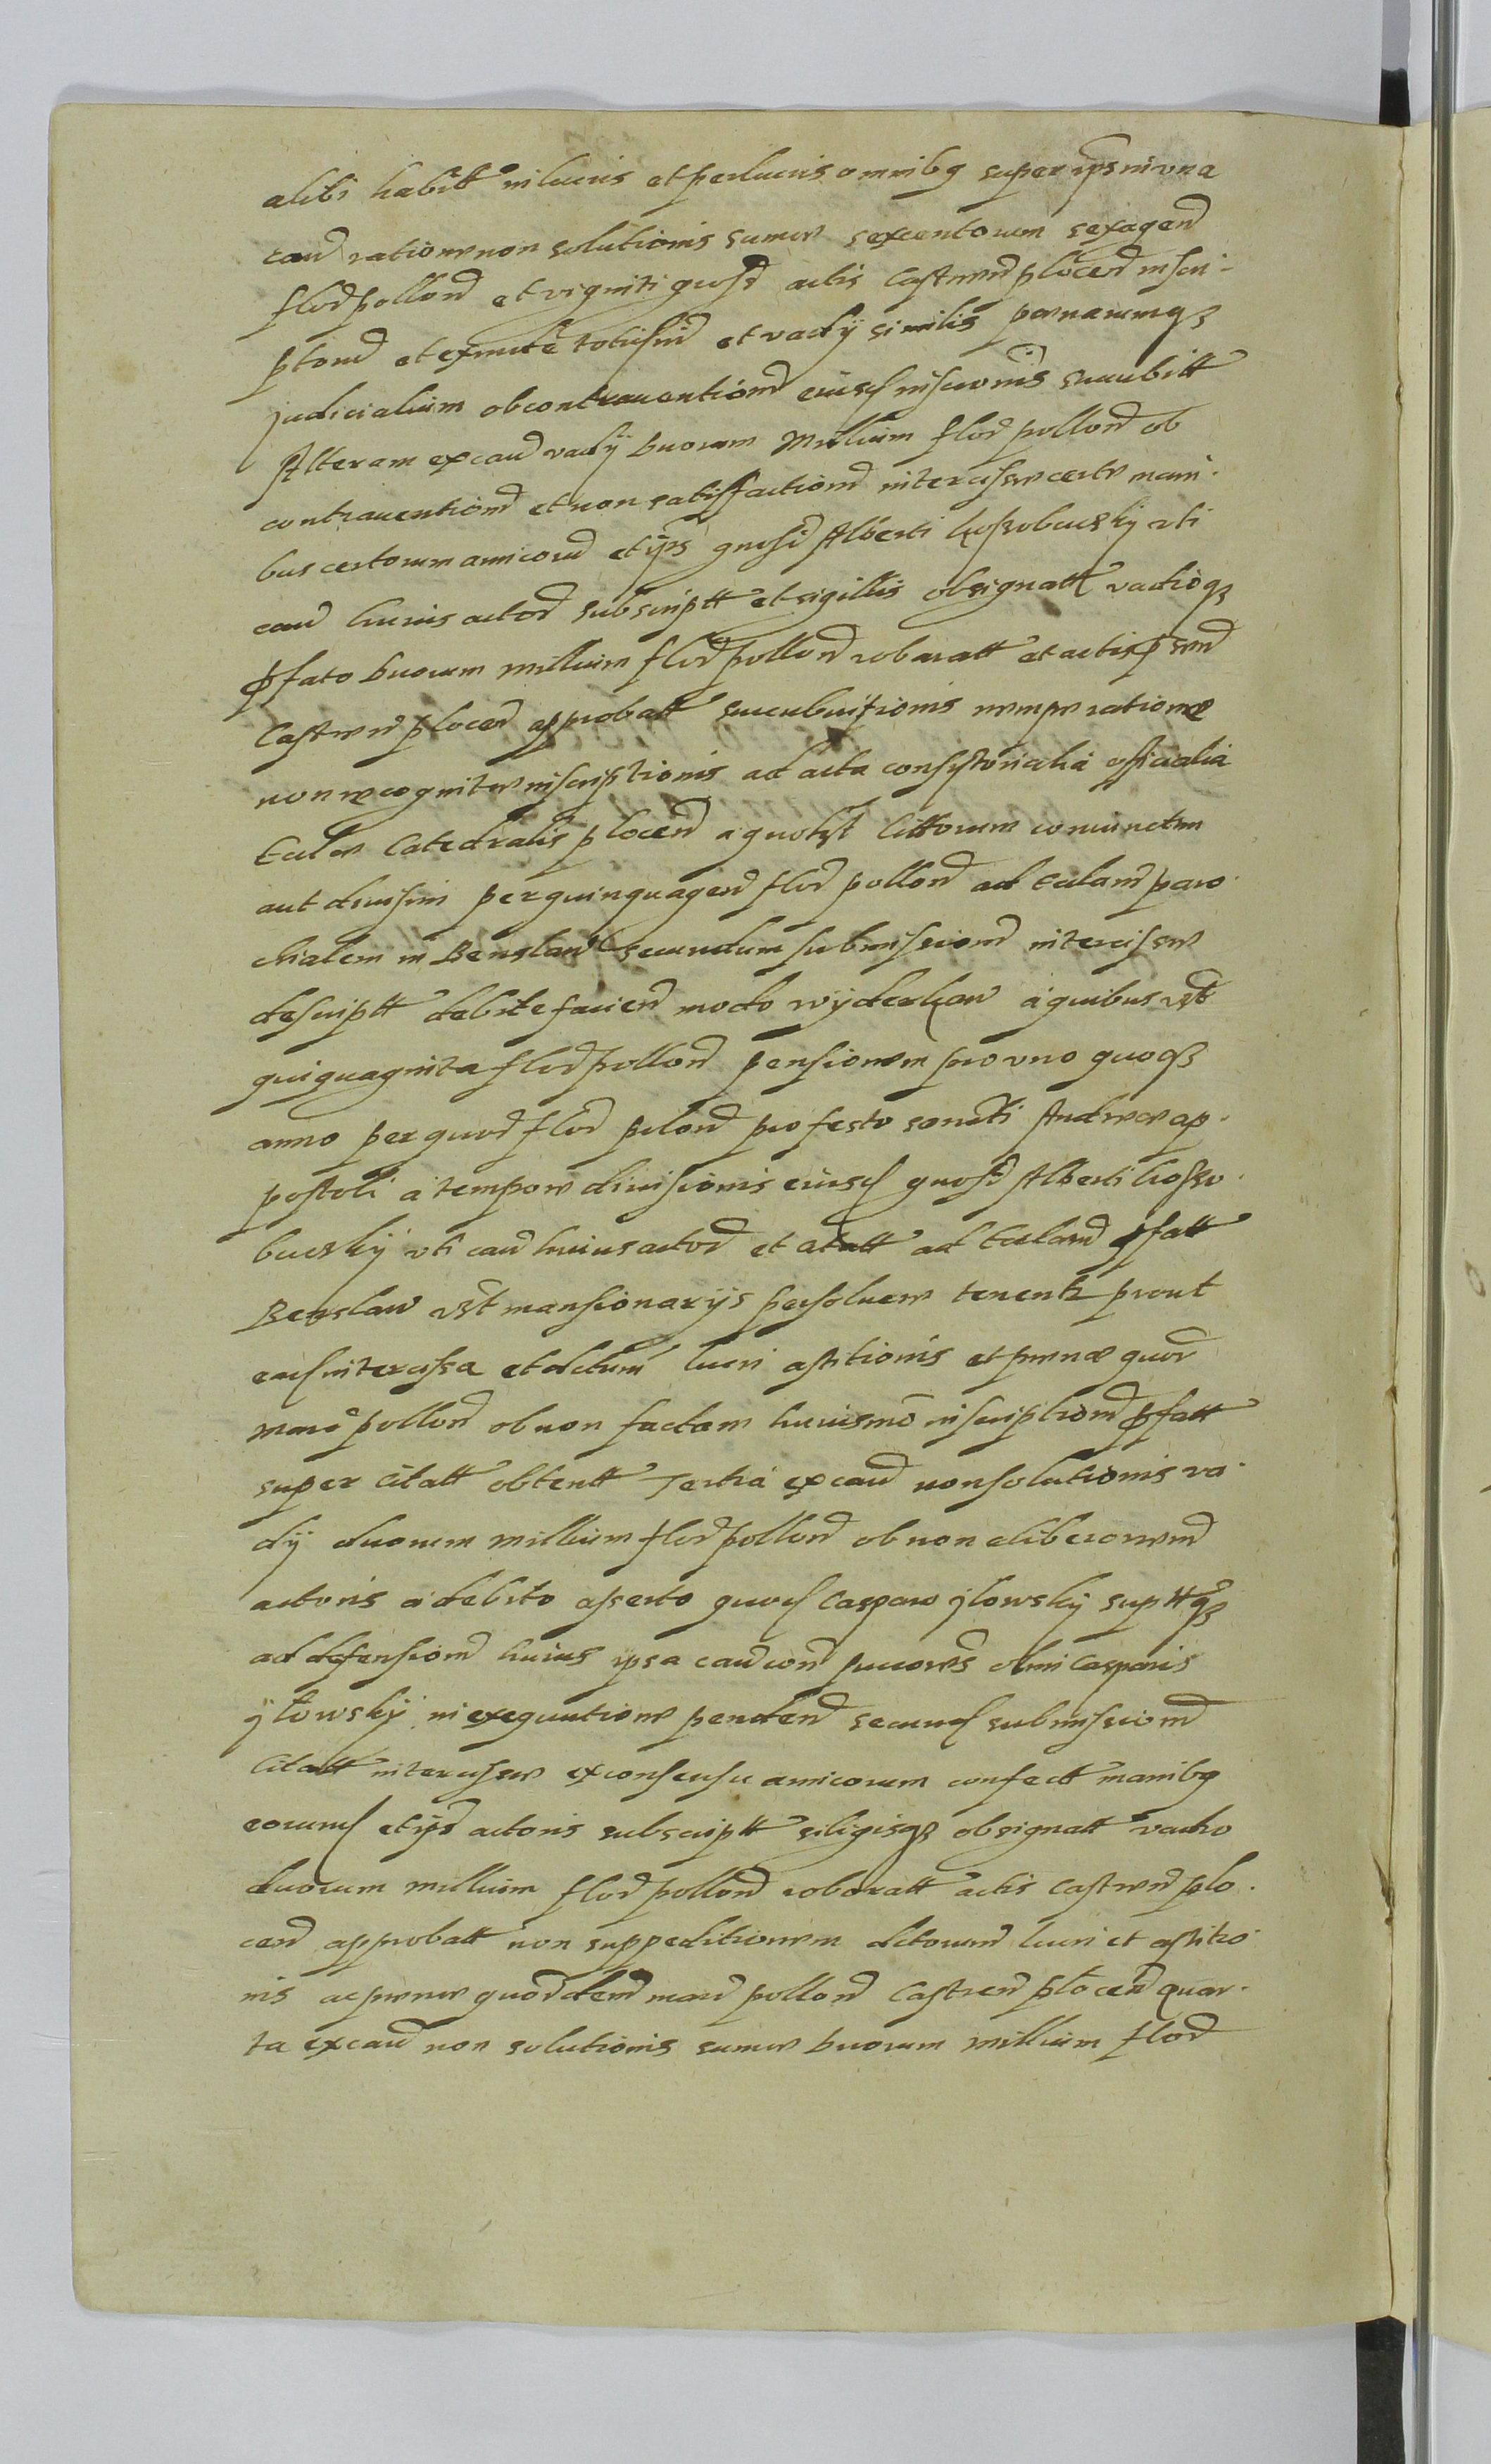 alibi habitt in lucris et perlucris omnibq super ips in una
caud ratione non solutionis summe sexcentorum sexagend
flor pollon et viginti gross actis Castren plocen inscri-
ptoru et eximite totiusin et vadij similis poenarumqz
judicialium ob contrauention eiusd inscronis succubitt
Alteram ex cau vadij duorum Millium flor pollon ob
contrauention et non satisffaction intercisse certe mani-
bus certorum amicoru et ips gnosi Alberti Kossobudsky uti
cau huius actor subscriptt et sigillis obsignatt vadioqz
pfato duorum millium flor pollon roboratt et actis psen
Castren plocen approbatt succubuitionis nempe ratione
non recognite inscriptionis ad acta consistorialia officialia
Eccl̄e Catedralis plocen a quolibt littorum coniunctim
aut diuisim per quinquagen flor pollon ad Ecclam paro-
chialem in Bonslaw secundum submission intercisse
descriptt debite facien modo wyderkaw a quibus vt
quiquaginta flor pollon pensionem pro vno quoqz
anno per quor flor polon pro festo sancti Andreae ap-
postoli a tempore diuisionis eiusd gnosi Alberti Kosso-
budsky uti cau huius actor et citatt ad Ecclam pfatt
Bonslaw vt mansionarijs persoluere tenentr prout
ead intercissa et dctum lucri astitionis et poenae quor
marc pollon ob non factam huiusmo inscription pfatt
super citatt obtentt Tertia ex cau non solutionis va-
dij duorum millium flor pollon ob non eliberoem
actoris a debito asserto quod Caspar ylowsky supttqz
ad defension huius ipsa cau con succores olim Casparis
ylowsky in exequutione penden secund submission
Citatt intercisse ex consensu amicorum confectt manibq
eorumd et ips actoris subscriptt siligisqz obsignatt vadio
duorum millium flor pollon roboratt actis Castren plo-
cen approbatt non suppeditionem dctorum lucri et astitio-
nis ac poene quordem marc pollon Castren plocen quar-
ta ex cau non solutionis summe duorum millium flor